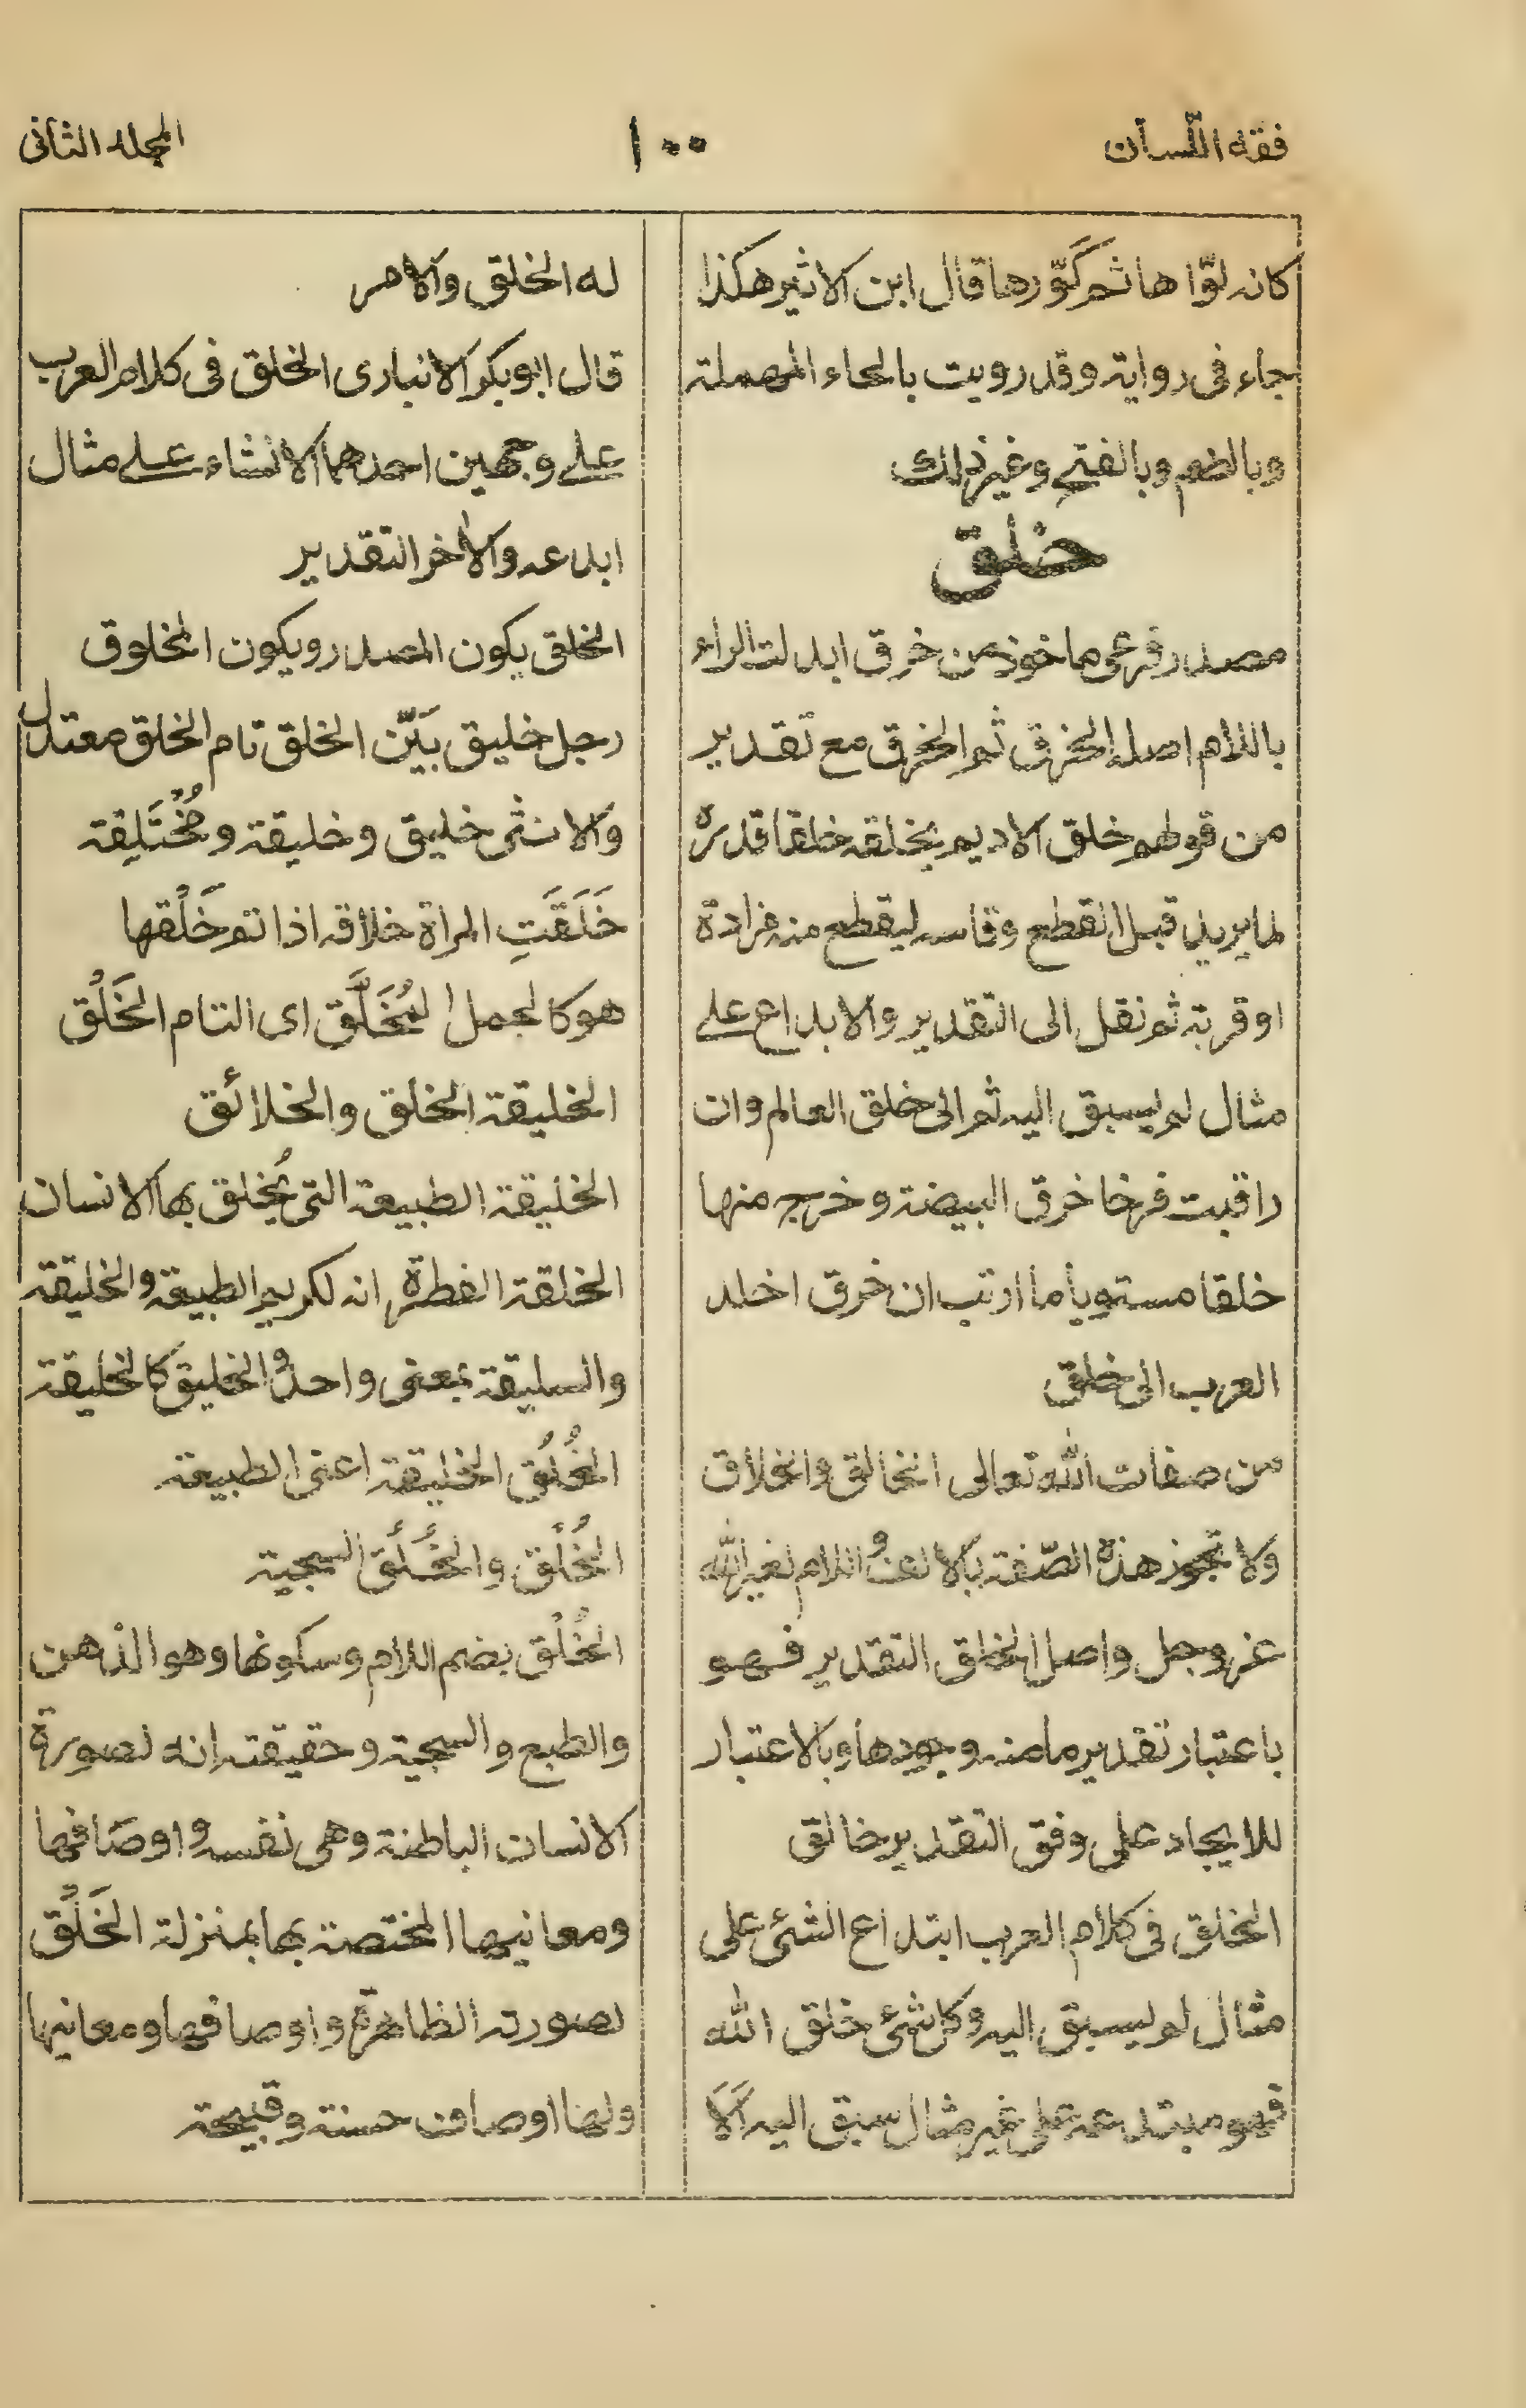 فقه اللّسان
١٠٠
المجلد الثانى
كانه لوّا ها ثم كَوّرها قال ابن الاثير هكذا
جاء فى رواية وقد رويت بالحاء المهملة
وبالضم وبالفتح وغير ذلك
خلق
مصدر فرعى ماخوذ من خرق ابدلت الراء
باللام اصله الخرق ثم الخرق مع تقدير
من قولهم خلق الاديم يخلقه خلقا قدره
لما يريد قبل القطع وقاسه ليقطع منه مزادة
او قربة ثم نقل الى التقدير والابداع على
مثال لم يسبق اليه ثم الى خلق العالم وان
راقبت فرخا خرق البيضة وخرج منها
خلقا مستويا ما ارتب ان خرق اخلد
العرب الى خلق
من صفات الله تعالى الخالق والخلاق
ولا تجوز هذه الصّفة بالالف واللام لغير الله
عز وجل واصل الخلق التقدير فهو
باعتبار تقدير ما منه وجودها وبالاعتبار
للايجاد على وفق التقدير خالق
الخلق فى كلام العرب ابتداع الشئ على
مثال لم يسبق اليه وكل شئ خلق الله
فهو مبتدعه على غير مثال سبق اليه اَلَا
له الخلق والامر
قال ابو بكر الانبارى الخلق فى كلام العرب
على وجهين احدهما الانشاء على مثال
ابدعه والاخر التقدير
الخلق يكون المصدر ويكون المخلوق
رجل خليق بَيّن الخلق تام الخلق معتدل
والانثى خليق وخليقة ومُخْتَلِقة
خَلَقَتِ المراة خلاقه اذا تم خَلْقها
هو كالجمل المُخَلَّق اى التام الخَلْق
الخليقة الخلق والخلائق
الخليقة الطبيعة التى يُخلق بها الانسان
الخلقة الفطرة انه لكريم الطبيعة والخليقة
والسليقة بمعنى واحد والخليق كالخليقة
الخُلُق الخليقة اعنى الطبيعة
الخُلْق والخُلُق السجية
الخُلْق بضم اللام وسكونها وهو الذهن
والطبع والسجية وحقيقته انه لصورة
الانسان الباطنة وهى نفسه و اوصَافها
ومعانيها المختصة بها بمنزلة الخَلْق
لصورته الظاهرة و اوصافها ومعانيها
ولها اوصاف حسنة وقبيحة